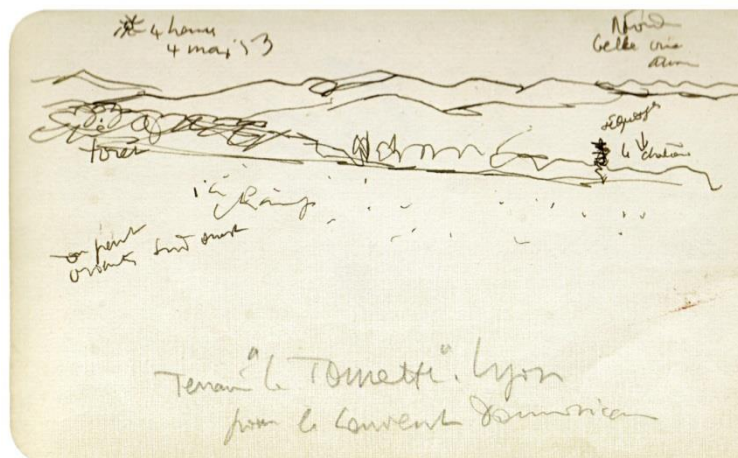 4 heures
4 mai 53
Nord
belle vue
séquoya
le château
forêt
ici
champ
on peut
orienter sud ouest
Terrain "la Tourette". Lyon
pour le Couvent Dominicain